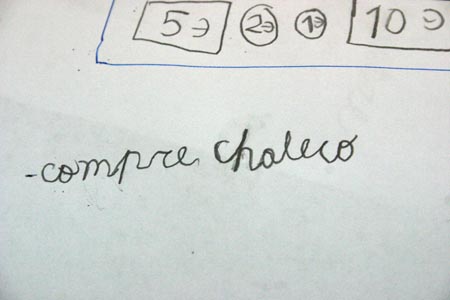 5 э 2э 1э 10 э
-compre chaleco